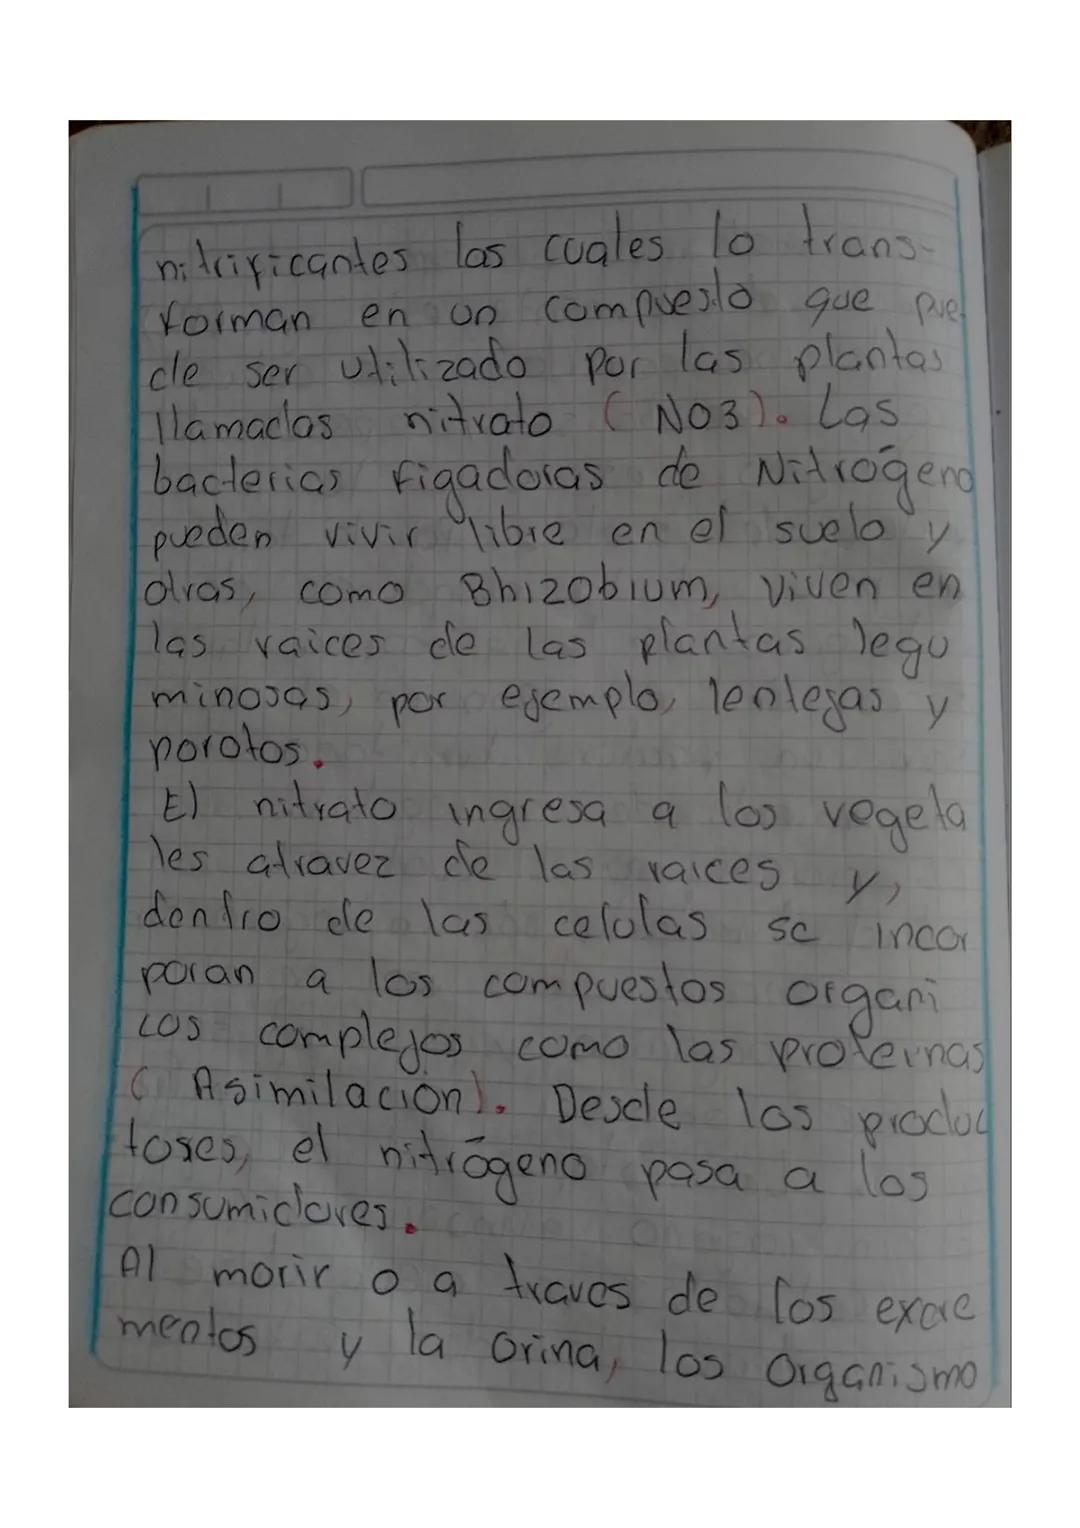 nitrificantes las cuales lo trans-
forman en un compuesto que pue
de ser utilizado por las plantas
llamadas nitrato (NO3). Las
bacterias figadoras de Nitrógeno
pueden vivir libre en el suelo y
otras, como Bhizobium, viven en
las raices de las plantas legu
minosas, por ejemplo, lentejas y
porotos.
El nitrato ingresa a los vegeta
les atravez de las raices y,
dentro de las celulas se incor
poran a los compuestos organi
cos complejos como las proteinas
(Asimilacion). Desde los produc
tores, el nitrógeno pasa a los
consumidores.
Al morir o a traves de los excre
mentos y la orina, los organismo